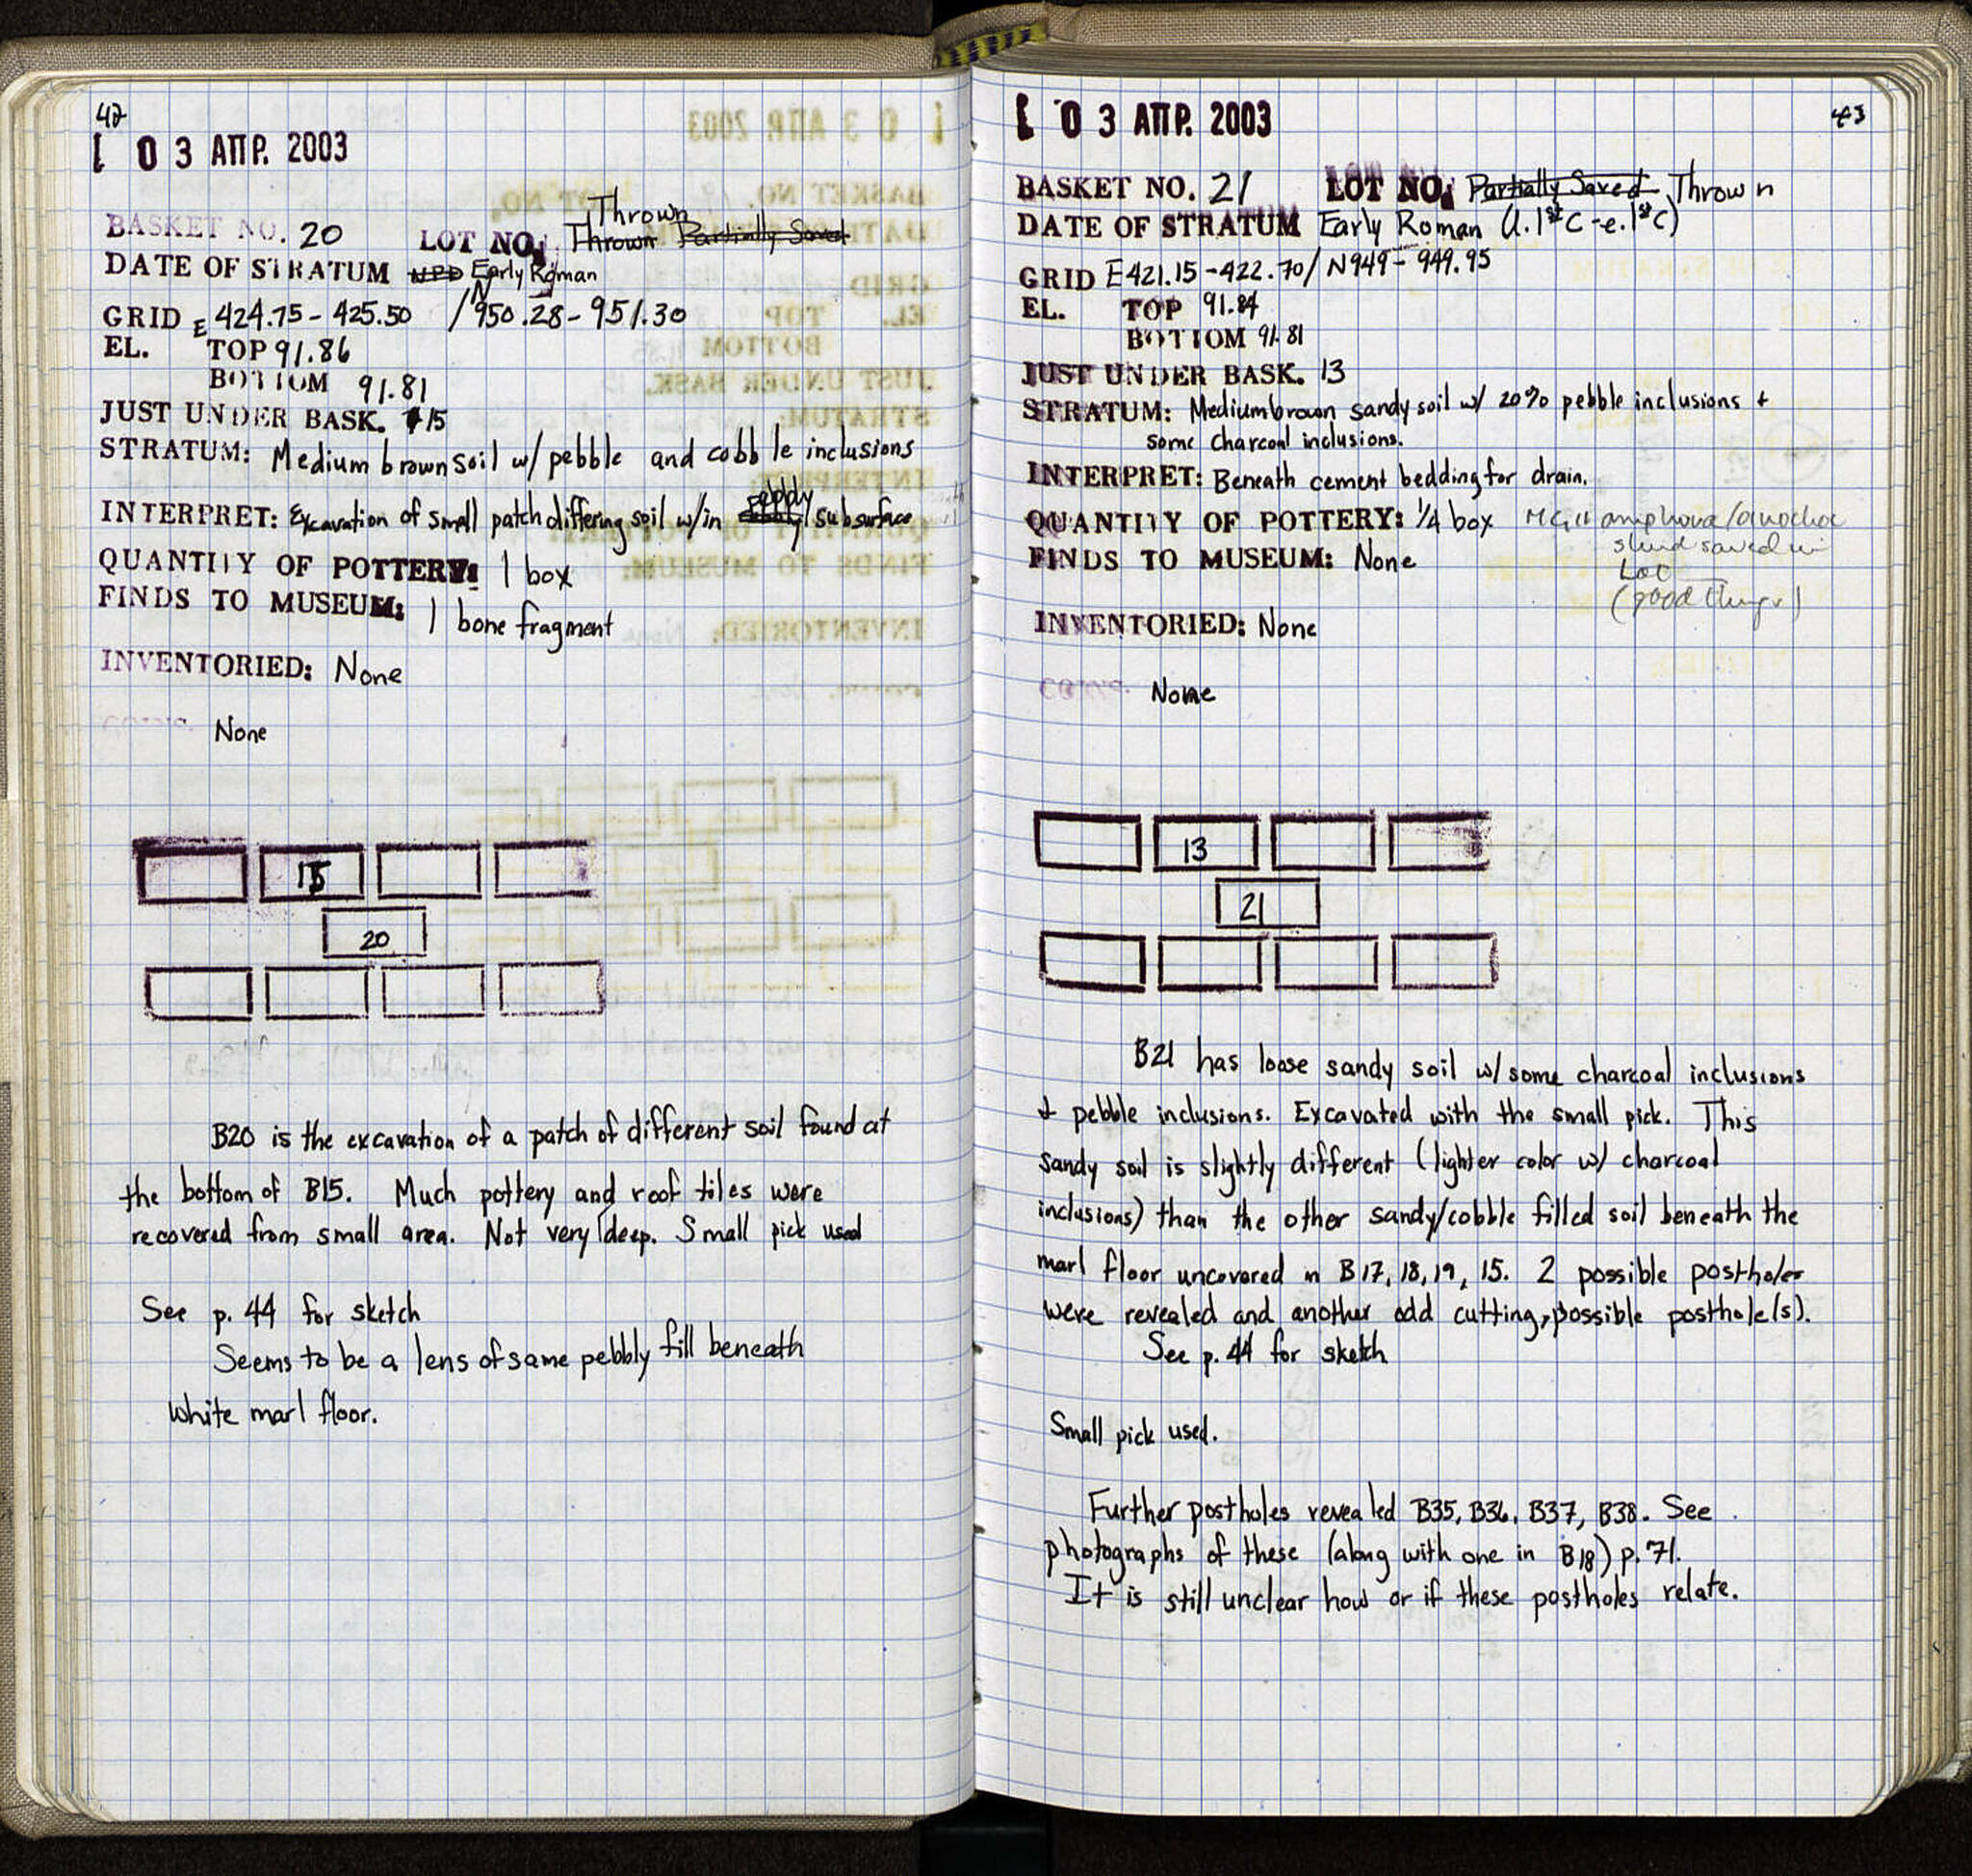 42
03 ΑΠΡ. 2003
BASKET NO. 20 LOT NO. Thrown Partially Saved
Thrown
DATE OF STRATUM NPD Early Roman
GRID E 424.75 - 425.50 / N 950.28 - 951.30
EL. TOP 91.86
BOTTOM 91.81
JUST UNDER BASK. 15
STRATUM: Medium brown soil w/ pebble and cobble inclusions
INTERPRET: Excavation of small patch differing soil w/in pebbly subsurface
QUANTITY OF POTTERY: 1 box
FINDS TO MUSEUM: 1 bone fragment
INVENTORIED: None
COINS. None
15
20
B20 is the excavation of a patch of different soil found at
the bottom of B15. Much pottery and roof tiles were
recovered from small area. Not very deep. Small pick used
See p. 44 for sketch
Seems to be a lens of same pebbly fill beneath
white marl floor.
43
03 ΑΠΡ. 2003
BASKET NO. 21 LOT NO. Partially Saved Thrown
DATE OF STRATUM Early Roman (l. 1st C - e. 1st C)
GRID E421.15 - 422.70 / N949 - 949.95
EL. TOP 91.84
BOTTOM 91.81
JUST UNDER BASK. 13
STRATUM: Medium brown sandy soil w/ 20% pebble inclusions +
some charcoal inclusions.
INTERPRET: Beneath cement bedding for drain.
QUANTITY OF POTTERY: 1/4 box MG II amphora/oinochoe
sherd saved in
Lot
(good things)
FINDS TO MUSEUM: None
INVENTORIED: None
COINS. None
13
21
B21 has loose sandy soil w/ some charcoal inclusions
+ pebble inclusions. Excavated with the small pick. This
sandy soil is slightly different (lighter color w/ charcoal
inclusions) than the other sandy/cobble filled soil beneath the
marl floor uncovered in B17, 18, 19, 15. 2 possible postholes
were revealed and another odd cutting, possible posthole(s).
See p. 44 for sketch
Small pick used.
Further postholes revealed B35, B36, B37, B38. See
photographs of these (along with one in B18) p. 71.
It is still unclear how or if these postholes relate.